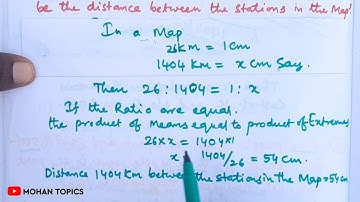 be the distance between the stations in the Map?
In a Map
26KM = 1Cm
1404 KM = x Cm Say.
Then 26 : 1404 = 1 : x
If the Ratio are equal.
the product of Means equal to product of Extremes
26 x x = 1404 x 1
x = 1404/26 = 54 Cm.
Distance 1404 Km between the stations in the Map = 54 Cm
MOHAN TOPICS